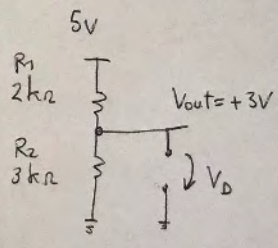 5V
R1
2kΩ
Vout=+3V
R2
3kΩ
VD